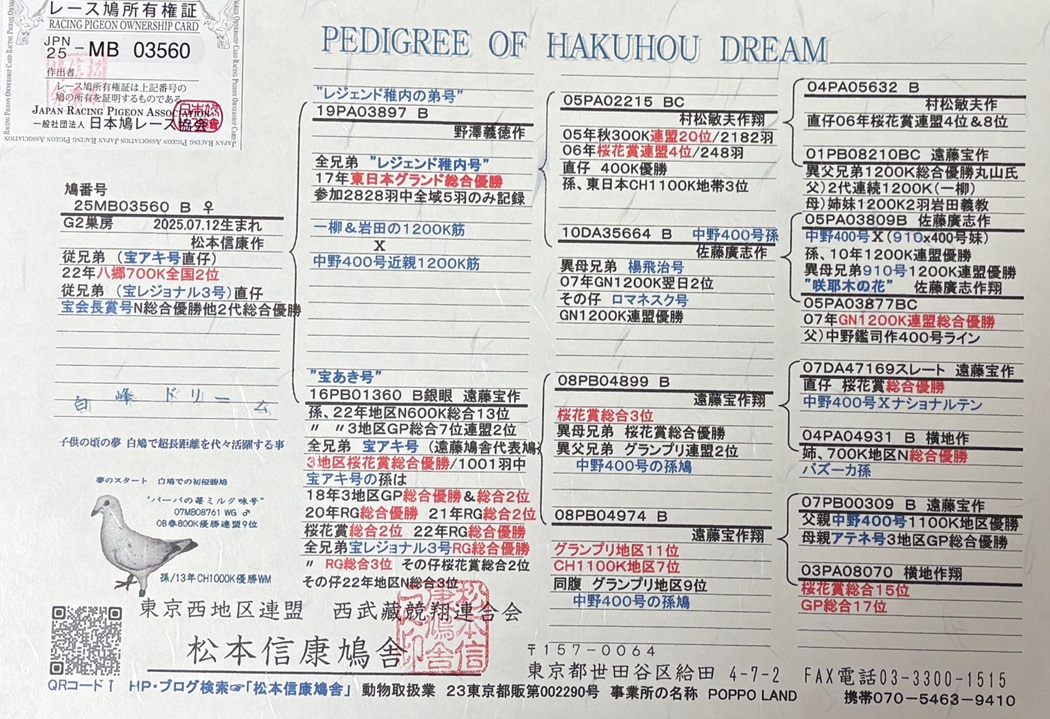 レース鳩所有権証
RACING PIGEON OWNERSHIP CARD
JPN
25-MB 03560
作出者
レース鳩所有権証は上記番号の
鳩の所有を証明するものである
JAPAN RACING PIGEON ASSOCIATION
一般社団法人 日本鳩レース協会
PEDIGREE OF HAKUHOU DREAM
鳩番号
25MB03560 B ♀
G2巣房 2025.07.12生まれ
松本信康作
従兄弟 (宝アキ号直仔)
22年八郷700K全国2位
従兄弟 (宝レジョナル3号)直仔
宝会長賞号N総合優勝他2代総合優勝
白峰ドリーム
子供の頃の夢 白鳩で超長距離を代々活躍する事
夢のスタート 白鳩での初優勝鳩
"パーパの苺ミルク味号"
07MB08761 WG ♂
08春800K優勝連盟9位
孫/13年CH1000K優勝WM
"レジェンド稚内の弟号"
19PA03897 B
野澤義徳作
全兄弟 "レジェンド稚内号"
17年東日本グランド総合優勝
参加2828羽中全域5羽のみ記録
一柳&岩田の1200K筋
X
中野400号近親1200K筋
"宝あき号"
16PB01360 B銀眼 遠藤宝作
孫、22年地区N600K総合13位
〃 〃3地区GP総合7位連盟2位
全兄弟 宝アキ号 (遠藤鳩舎代表鳩)
3地区桜花賞総合優勝/1001羽中
宝アキ号の孫は
18年3地区GP総合優勝&総合2位
20年RG総合優勝 21年RG総合2位
桜花賞総合2位 22年RG総合優勝
全兄弟宝レジョナル3号RG総合優勝
〃 RG総合3位 その仔桜花賞総合2位
その仔22年地区N総合3位
05PA02215 BC
村松敏夫作翔
05年秋300K連盟20位/2182羽
06年桜花賞連盟4位/248羽
直仔 400K優勝
孫、東日本CH1100K地帯3位
10DA35664 B 中野400号孫
佐藤廣志作
異母兄弟 楊飛治号
07年GN1200K翌日2位
その仔 ロマネスク号
GN1200K連盟優勝
08PB04899 B
遠藤宝作翔
桜花賞総合3位
異母兄弟 桜花賞連盟優勝
異父兄弟 グランプリ連盟2位
中野400号の孫鳩
08PB04974 B
遠藤宝作翔
グランプリ地区11位
CH1100K地区7位
同腹 グランプリ地区9位
中野400号の孫鳩
04PA05632 B
村松敏夫作
直仔06年桜花賞連盟4位&8位
01PB08210BC 遠藤宝作
異父兄弟1200K総合優勝丸山氏
父)2代連続1200K(一柳)
母)姉妹1200K2羽岩田義教
05PA03809B 佐藤廣志作
中野400号X(910x400号妹)
孫、10年1200K連盟優勝
異母兄弟910号1200K連盟優勝
"咲耶木の花" 佐藤廣志作翔
05PA03877BC
07年GN1200K連盟総合優勝
父)中野鑑司作400号ライン
07DA47169スレート 遠藤宝作
直仔 桜花賞総合優勝
中野400号Xナショナルテン
04PA04931 B 横地作
姉、700K地区N総合優勝
バズーカ孫
07PB00309 B 遠藤宝作
父親中野400号1100K地区優勝
母親アテネ号3地区GP総合優勝
03PA08070 横地作翔
桜花賞総合15位
GP総合17位
東京西地区連盟 西武蔵競翔連合会
松本信康鳩舎
〒157-0064
東京都世田谷区給田 4-7-2 FAX電話03-3300-1515
QRコード↑ HP・ブログ検索☞「松本信康鳩舎」 動物取扱業 23東京都販第002290号 事業所の名称 POPPO LAND 携帯070-5463-9410